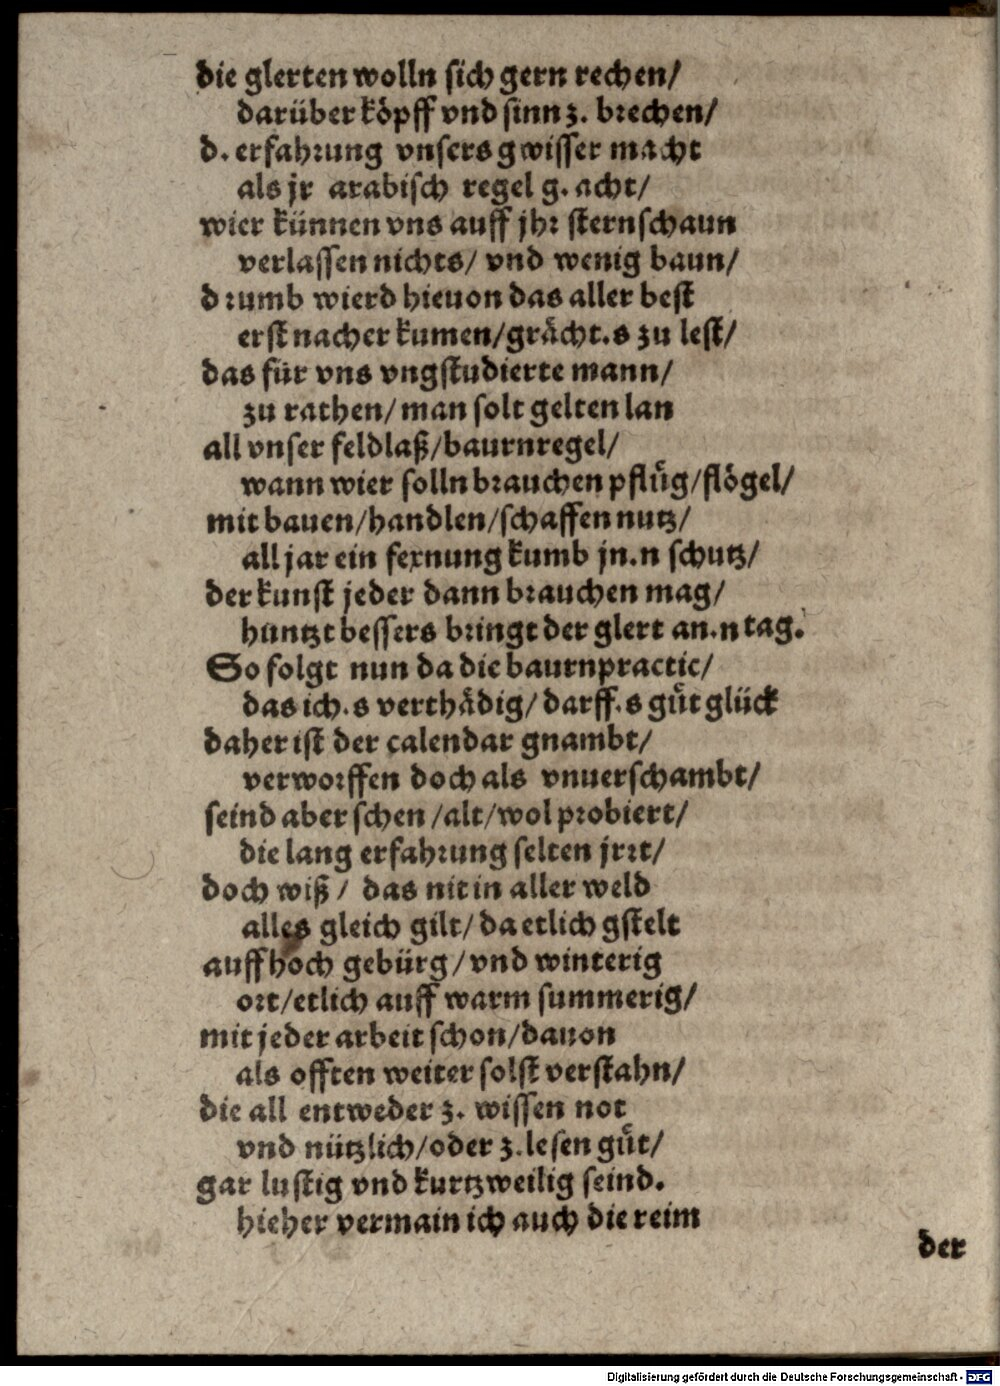 die glerten wolln sich gern rechen/
darüber köpff vnd sinn z. brechen/
d. erfahrung vnsers gwisser macht
als jr arabisch regel g. acht/
wier künnen vns auff jhr sternschaun
verlassen nichts/ vnd wenig baun/
drumb wierd hieuon das aller best
erst nacher kumen/grächt.s zu lest/
das für vns vngstudierte mann/
zu rathen/man solt gelten lan
all vnser feldlaß/baurnregel/
wann wier solln brauchen pflüg/flögel/
mit bauen/handlen/schaffen nutz/
all jar ein fexnung kumb jn.n schutz/
der kunst jeder dann brauchen mag/
huntzt bessers bringt der glert an.n tag.
So folgt nun da die baurnpractic/
das ich.s verthädig/darff.s gůt glück
daher ist der calendar gnambt/
verworffen doch als vnuerschambt/
seind aber schen/alt/wol probiert/
die lang erfahrung selten jrrt/
doch wiß/ das nit in aller weld
alles gleich gilt/da etlich gstelt
auff hoch gebürg/vnd winterig
ort/etlich auff warm summerig/
mit jeder arbeit schon/dauon
als offten weiter solst verstahn/
die all entweder z. wissen not
vnd nützlich/oder z.lesen gůt/
gar lustig vnd kurtzweilig seind.
hieher vermain ich auch die reim
der
Digitalisierung gefördert durch die Deutsche Forschungsgemeinschaft - DFG